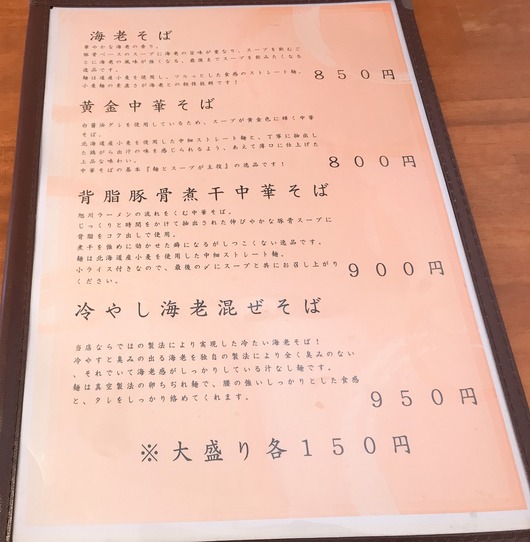 海老そば
華やかな海老の香り。
豚骨ベースのスープに海老の旨味が重なり、スープを飲むご
とに海老の風味が強くなる、最後までスープを飲みたくなる
逸品です。
麺は道産小麦を使用し、つるっとした食感のストレート麺。
小麦麺の素直さが海老との相性抜群です!
850円
黄金中華そば
白醤油ダレを使用しているため、スープが黄金色に輝く中華
そば。
北海道産小麦を使用した中細ストレート麺と、丁寧に抽出し
た鶏がら出汁の味を感じられるよう、あえて薄口に仕上げた
上品な味わい。
中華そばの基本『麺とスープが主役』の逸品です!
800円
背脂豚骨煮干中華そば
旭川ラーメンの流れをくむ中華そば。
じっくりと時間をかけて抽出された伸びやかな豚骨スープに
背脂をコク出しで使用。
煮干を強めに効かせた癖になるがしつこくない逸品です。
麺は北海道産小麦を使用した中細ストレート麺。
小ライス付きなので、最後の〆にスープと共にお召し上がり
ください。
900円
冷やし海老混ぜそば
当店ならではの製法により実現した冷たい海老そば!
冷やすと臭みの出る海老を独自の製法により全く臭みのない
、それでいて海老感がしっかりしている汁なし麺です。
麺は真空製法の卵ちぢれ麺で、腰の強いしっかりとした食感
と、タレをしっかり絡めてくれます。
950円
※大盛り各150円